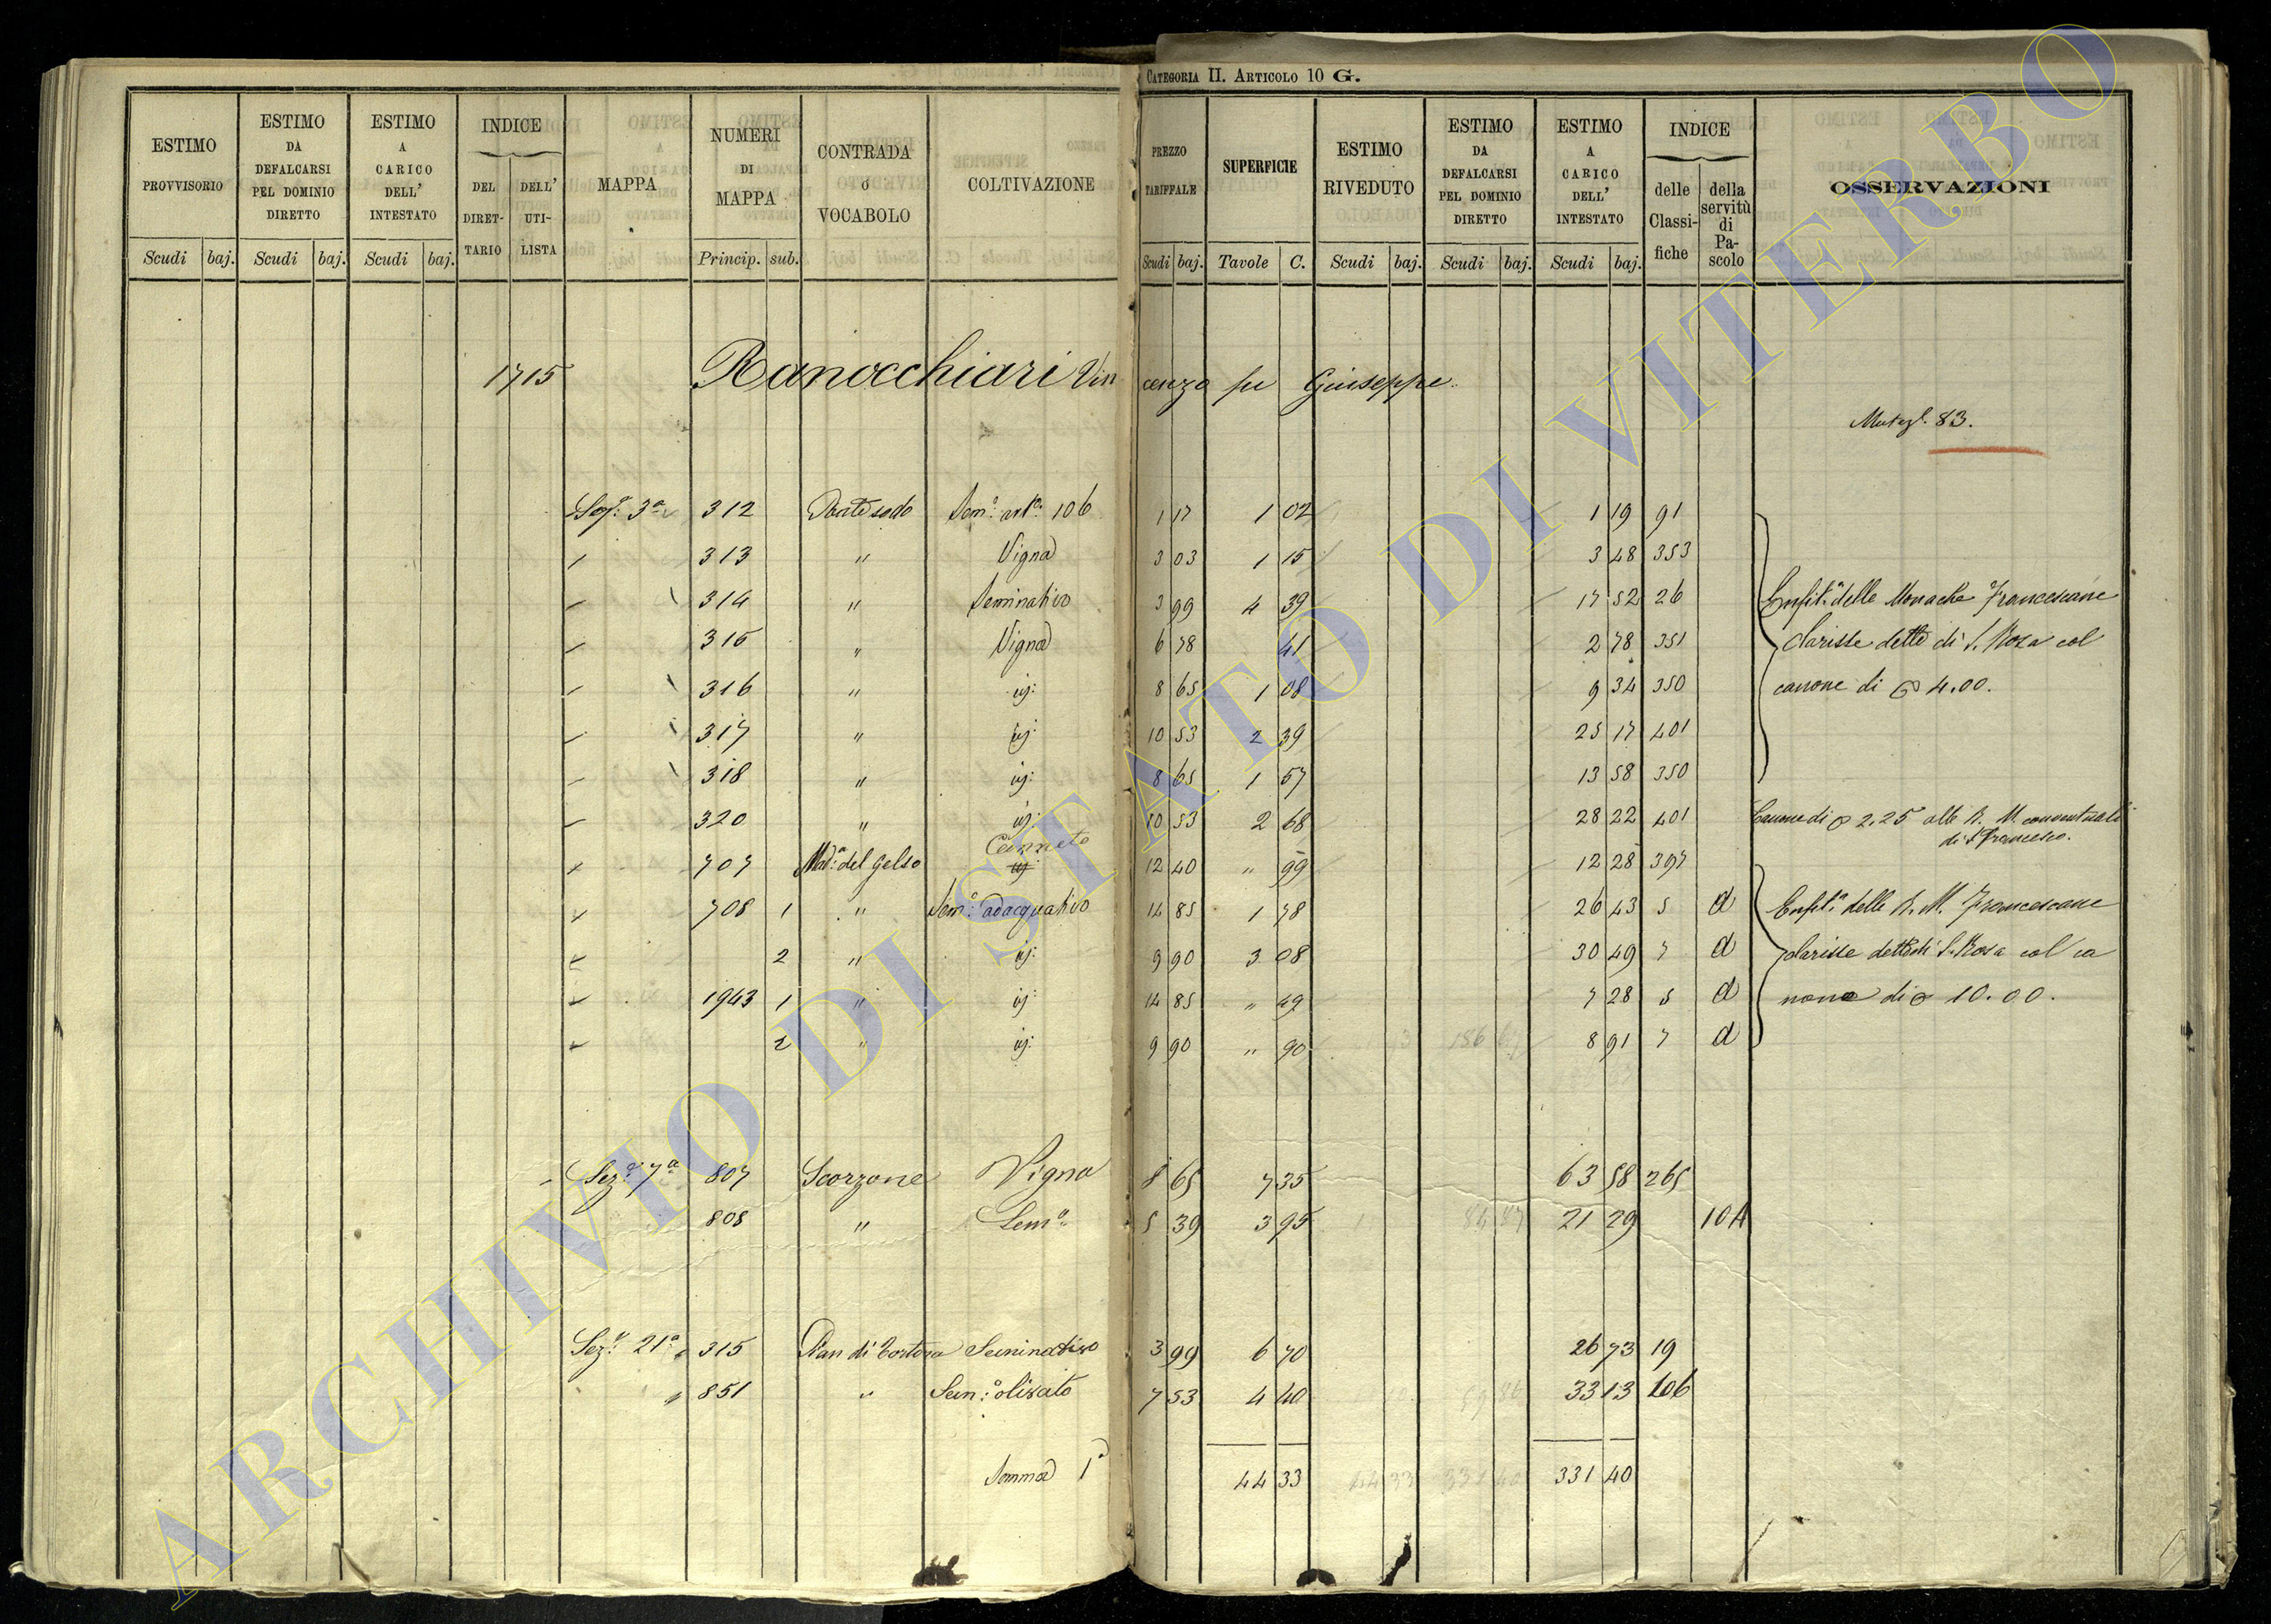 CATEGORIA II. ARTICOLO 10 G.
ESTIMO PROVVISORIO Scudi baj.
ESTIMO DA DEFALCARSI PEL DOMINIO DIRETTO Scudi baj.
ESTIMO A CARICO DELL' INTESTATO Scudi baj.
INDICE DEL DIRET-TARIO DELL' UTI-LISTA
MAPPA
NUMERI DI MAPPA Princip. sub.
CONTRADA o VOCABOLO
COLTIVAZIONE
PREZZO TARIFFALE Scudi baj.
SUPERFICIE Tavole C.
ESTIMO RIVEDUTO Scudi baj.
ESTIMO DA DEFALCARSI PEL DOMINIO DIRETTO Scudi baj.
ESTIMO A CARICO DELL' INTESTATO Scudi baj.
INDICE delle Classi-fiche della servitù di Pa-scolo
OSSERVAZIONI
1715 Ranocchiari Vincenzo fu Giuseppe
83.
Sez.e 3a 312 Ponte sodo Sem.o art.o 106 1 17 1 02 1 19 91
313 " Vigna 3 03 1 15 3 48 353
314 " Seminativo 3 99 4 39 17 52 26 Enfit.a delle Monache Francescane
315 " Vigna 6 78 41 2 78 351 Clarisse dette di S. Rosa col
316 " id: 8 65 1 08 9 34 350 canone di 4.00.
317 " id: 10 53 2 39 25 17 401
318 " id: 8 65 1 57 13 58 350
320 " id: 10 53 2 68 28 22 401 Canone di 2.25 alle R. M. conventuali
di S Francesco.
707 Mad.a del Gelso Canneto 12 40 " 99 12 28 397
708 1 " Sem.o adacquativo 14 85 1 78 26 43 5 d Enfit.a delle R. M. Francescane
2 " id: 9 90 3 08 30 49 7 d clarisse dette di S. Rosa col ca
1943 1 " id: 14 85 " 49 7 28 5 d none di 10.00.
2 " id: 9 90 " 90 8 91 7 d
Sez.e 7a 807 Scorzone Vigna 8 65 7 35 63 58 265
808 " Sem.o 5 39 3 95 21 29 10A
Sez.e 21a 315 Pian di Seminativo 3 99 6 70 26 73 19
851 " Sem.o olivato 7 53 4 40 33 13 106
Somma 44 33 331 40
ARCHIVIO DI STATO DI VITERBO